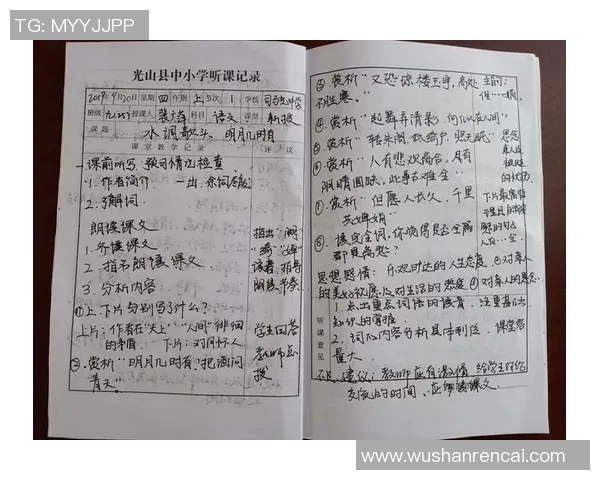 TG: MYYJJPP
光山县中小学听课记录
2019年9月20日 星期 四 年级 上 节次 1 学校
班级 九(253) 授课人 科目 语文 课型 新授
课题 水调歌头·明月几时有
课堂教学记录 评议
一课前听写、预习情况检查
1. 作者简介 一出示词念
2. 了解词
朗读课文
1. 齐读课文
2. 指名朗读课文
3. 分析内容
①上、下片分别写了什么?
上片:作者在"天上""人间"徘徊 学生回答
的矛盾 下片:对月怀人 教师点
②.赏析"明月几时有,把酒问 拨
青天"
③.赏析"又恐琼楼玉宇,高处
不胜寒。"
④.赏析"起舞弄清影,何似在人间"
⑤.赏析"转朱阁,低绮户,照无眠"
⑥.赏析"人有悲欢离合,月有
阴晴圆缺,此事古难全"
⑦.赏析"但愿人长久,千里
共婵娟"
⑧.读完全词,你觉得是否全篇
都是离愁?
思想感情:乐观旷达的人生态度 ②对亲人
的美好祝愿 对生活的热爱 ④对亲人的思念
听课意见
1. 点出重点词语的读音,注重基础
知识的掌握
2. 词的内容分析具体到位,课堂容
量大。
建议:教师应有激情 给学生
交流的时间,应 课文
www.wushanrencai.com